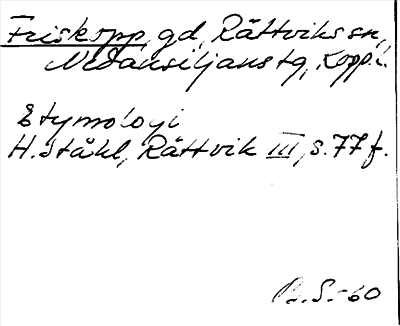 Friskopp, gd, Rättviks sn,
Nedansiljans tg, Kopp. l.
Etymologi
H. Ståhl, Rättvik III, s. 77 f.
S. -60